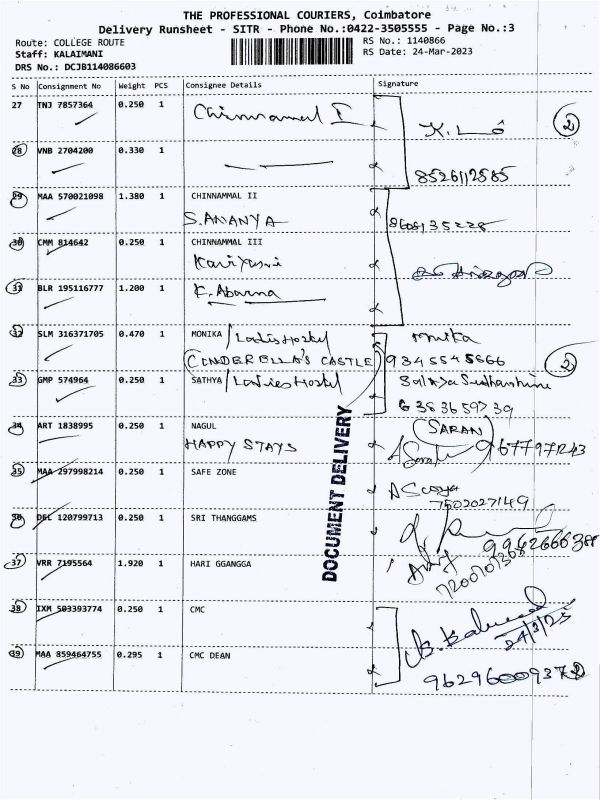 THE PROFESSIONAL COURIERS, Coimbatore
Delivery Runsheet - SITR - Phone No.:0422-3505555 - Page No.:3
Route: COLLEGE ROUTE
Staff: KALAIMANI
DRS No.: DCJB114086603
RS No.: 1140866
RS Date: 24-Mar-2023
S No Consignment No Weight PCS Consignee Details Signature
27 TNJ 7857364 0.250 1 Chinnamal I
2
28 VNB 2704200 0.330 1
8526112585
29 MAA 570021098 1.380 1 CHINNAMMAL II
S. ANANYA 8608135228
30 CMM 814642 0.250 1 CHINNAMMAL III
31 BLR 195116777 1.200 1 K. Abarna
32 SLM 316371705 0.470 1 MONIKA / Ladies Hostel
(CINDERELLA'S CASTLE) 9345545666 2
33 GMP 574964 0.250 1 SATHYA / Ladies Hostel
6383659739
34 ART 1838995 0.250 1 NAGUL (SARAN)
HAPPY STAYS 9677971243
35 MAA 297998214 0.250 1 SAFE ZONE
7502027149
36 DEL 120799713 0.250 1 SRI THANGGAMS
37 VRR 7195564 1.920 1 HARI GGANGGA
38 IXM 503393774 0.250 1 CMC
24/3/23
39 MAA 859464755 0.295 1 CMC DEAN
9629600937 2
DOCUMENT DELIVERY